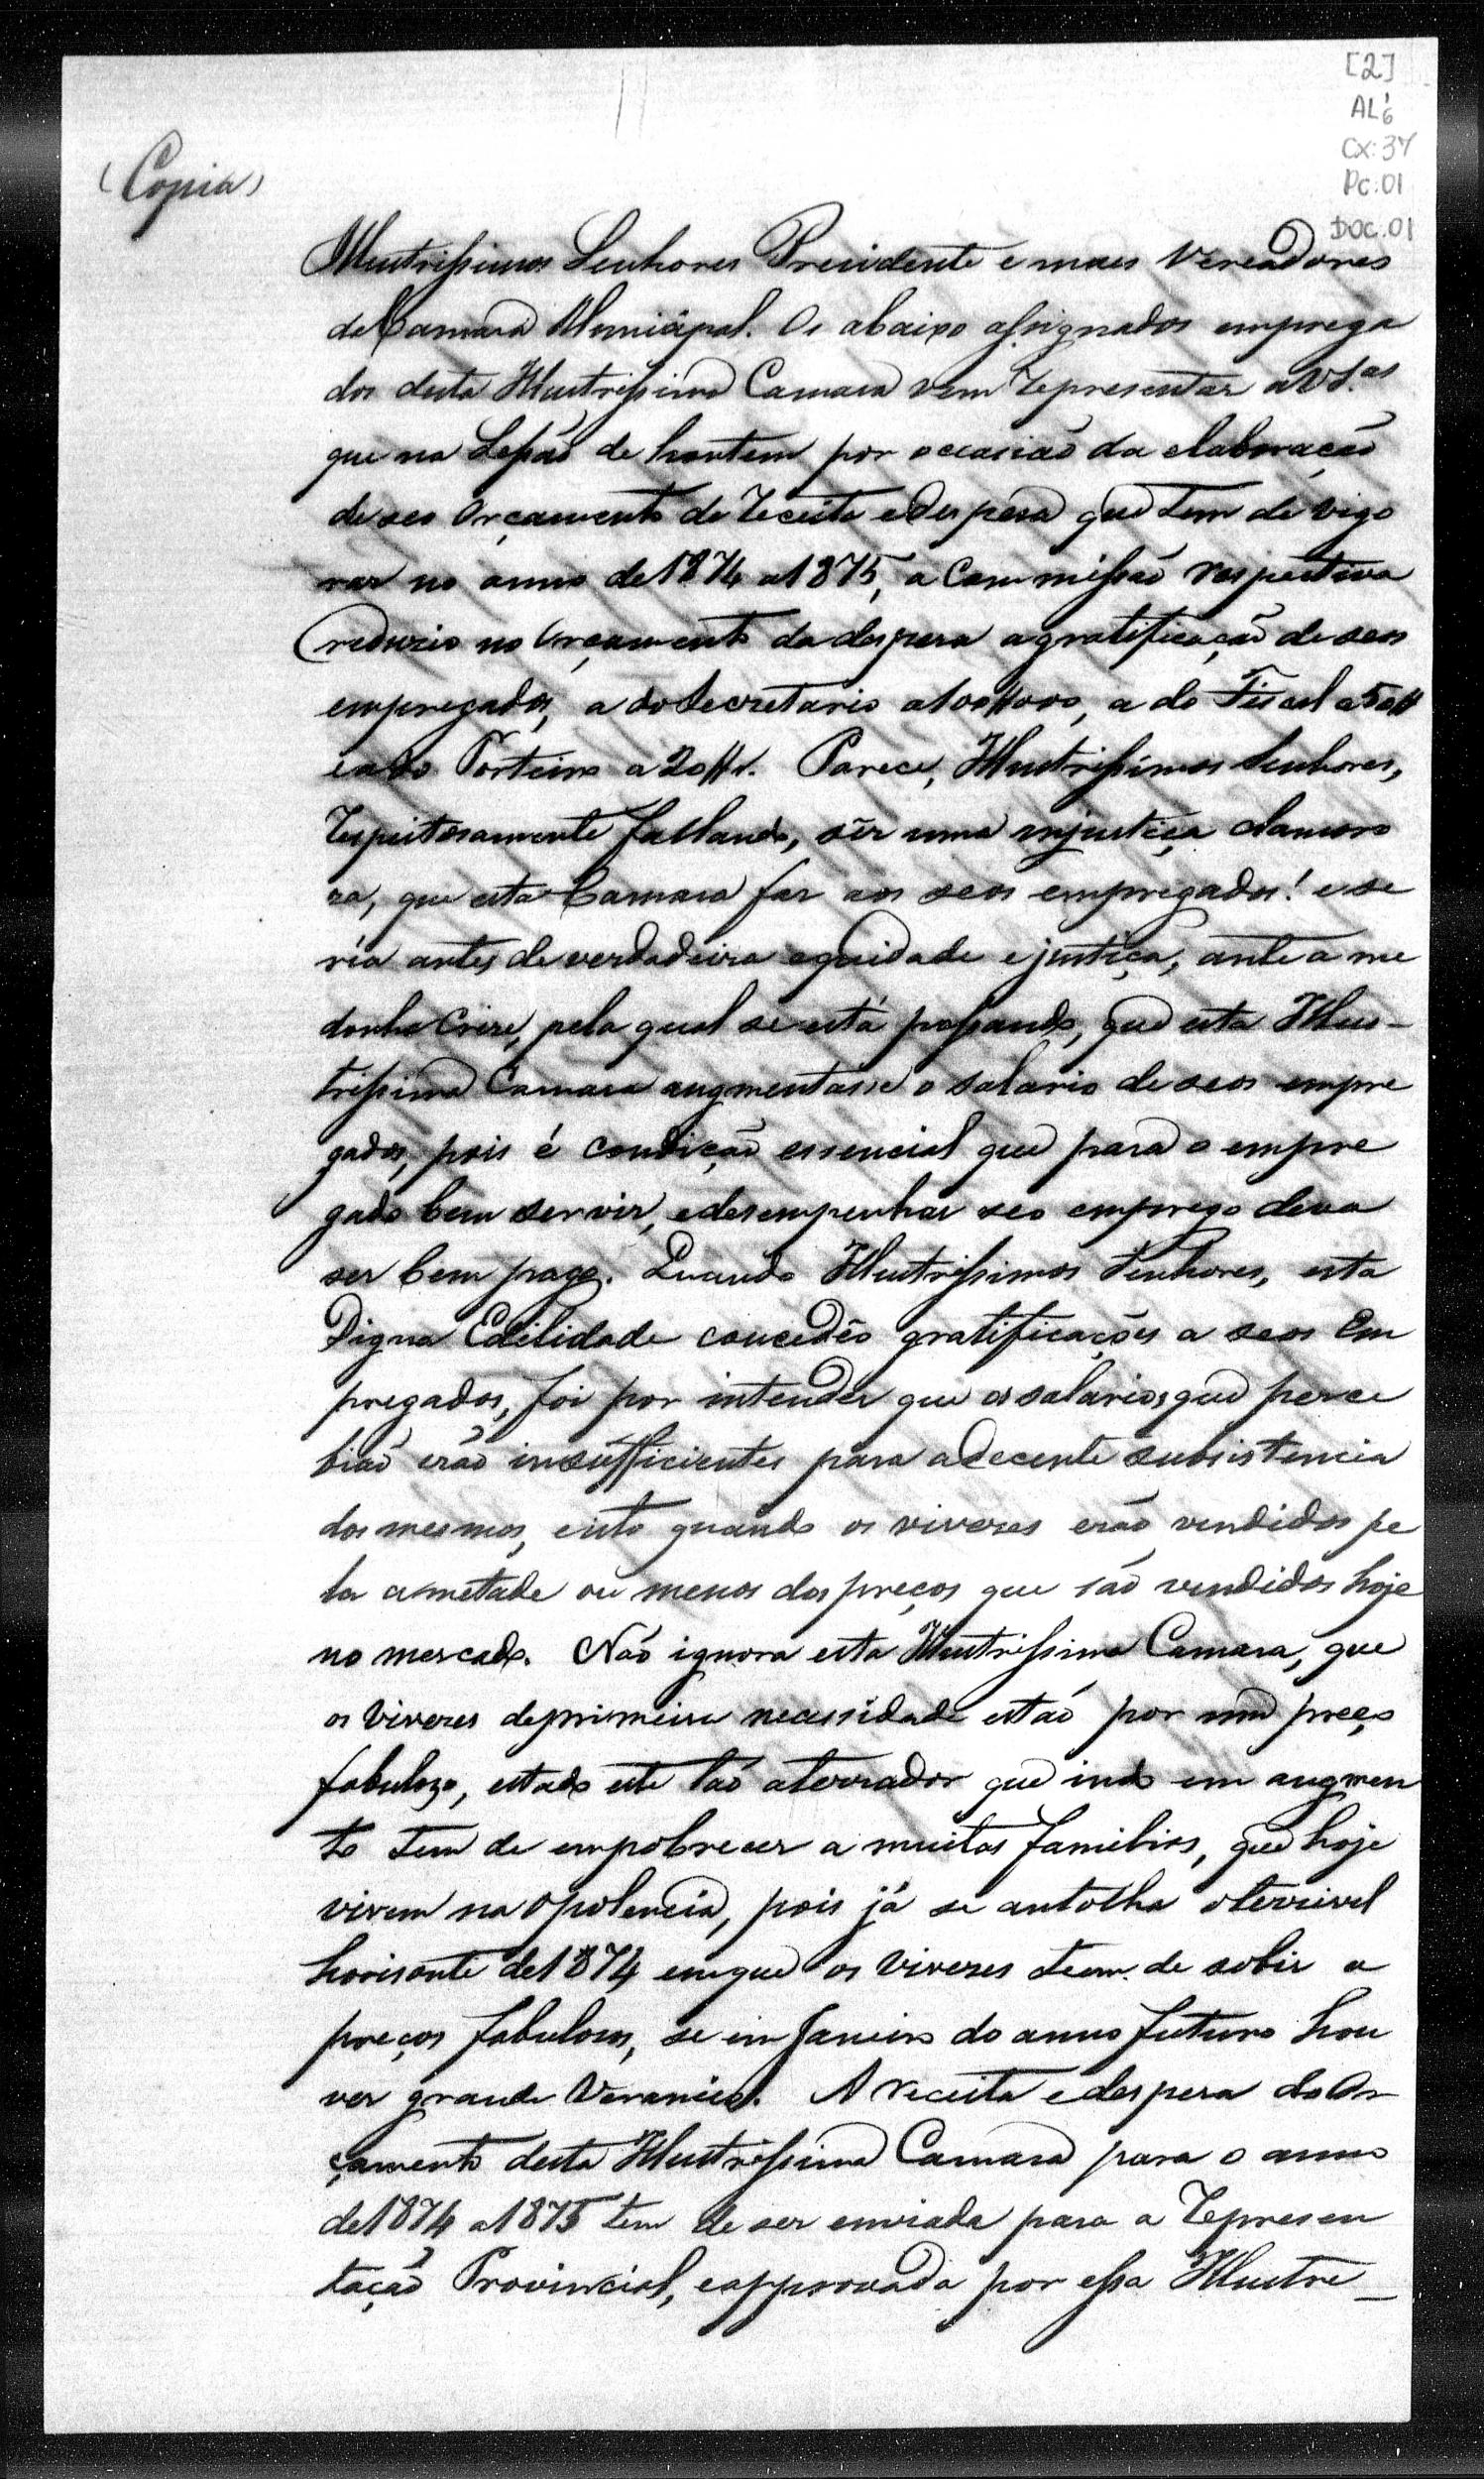 [2]
AL6
Cx: 37
Pc: 01
DOC. 01
(Copia)
Illustrissimos Senhores Presidente e mais Vereadores
da Camara Municipal. Os abaixo assignados emprega
dos desta Illustrissima Camara vem representar a V.S.as
que na Sessão de hontem por occasião da elaboração
de seo Orçamento de receita e despesa que tem de vigo
rar no anno de 1874 a 1875, a Commissão respectiva
reduzio no Orçamento da despesa a gratificação de seos
empregados, a do Secretario a 100#000, a do Fiscal a 50#
e a do Porteiro a 20#. Parece, Illustrissimos Senhores,
respeitosamente fallando, sêr uma injustiça clamoro
za, que esta Camara faz aos seos empregados! e se
ria antes de verdadeira equidade e justiça, ante a me
donha Crize, pela qual se está passando, que esta Illus-
trissima Camara augmentasse o salario de seos empre
gados, pois é condição essencial que para o empre
gado bem servir, e desempenhar seo emprego deva
ser bem pago. Quando Illustrissimos Senhores, esta
Digna Edilidade concedêo gratificações a seos Em
pregados, foi por intender que os salarios que perce
bião erão insufficientes para a decente subsistencia
dos mesmos, e isto quando os viveres erão vendidos pe
la ametade ou menos dos preços que são vendidos hoje
no mercado. Não ignora esta Illustrissima Camara, que
os viveres de primeira necessidade estão por um preço
fabulozo, estado este tão aterrador que indo em augmen
to tem de empobrecer a muitas familias, que hoje
vivem na opolencia, pois já se antolha o terrivel
horisonte de 1874 em que os viveres tem de sobir a
preços fabulosos, se em Janeiro do anno futuro hou
ver grande Veranico. A receita e despesa do Or-
çamento desta Illustrissima Camara para o anno
de 1874 a 1875 tem de ser enviada para a Represen
tação Provincial, e approvada por essa Illustre_